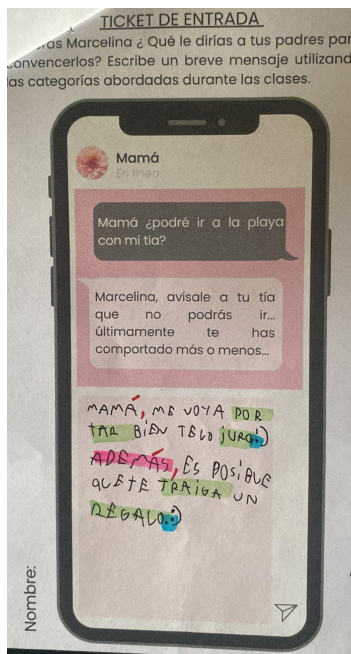 TICKET DE ENTRADA
Marcelina ¿ Qué le dirías a tus padres par
convencerlos? Escribe un breve mensaje utilizand
as categorías abordadas durante las clases.
Mamá
En línea
Mamá ¿podré ir a la playa
con mi tía?
Marcelina, avísale a tu tía
que no podrás ir...
últimamente te has
comportado más o menos...
MAMÁ, ME VOY A POR
TAR BIEN TE LO JURO.:)
ADEMÁS, ES POSIBLE
QUE TE TRAIGA UN
REGALO.:)
Nombre: